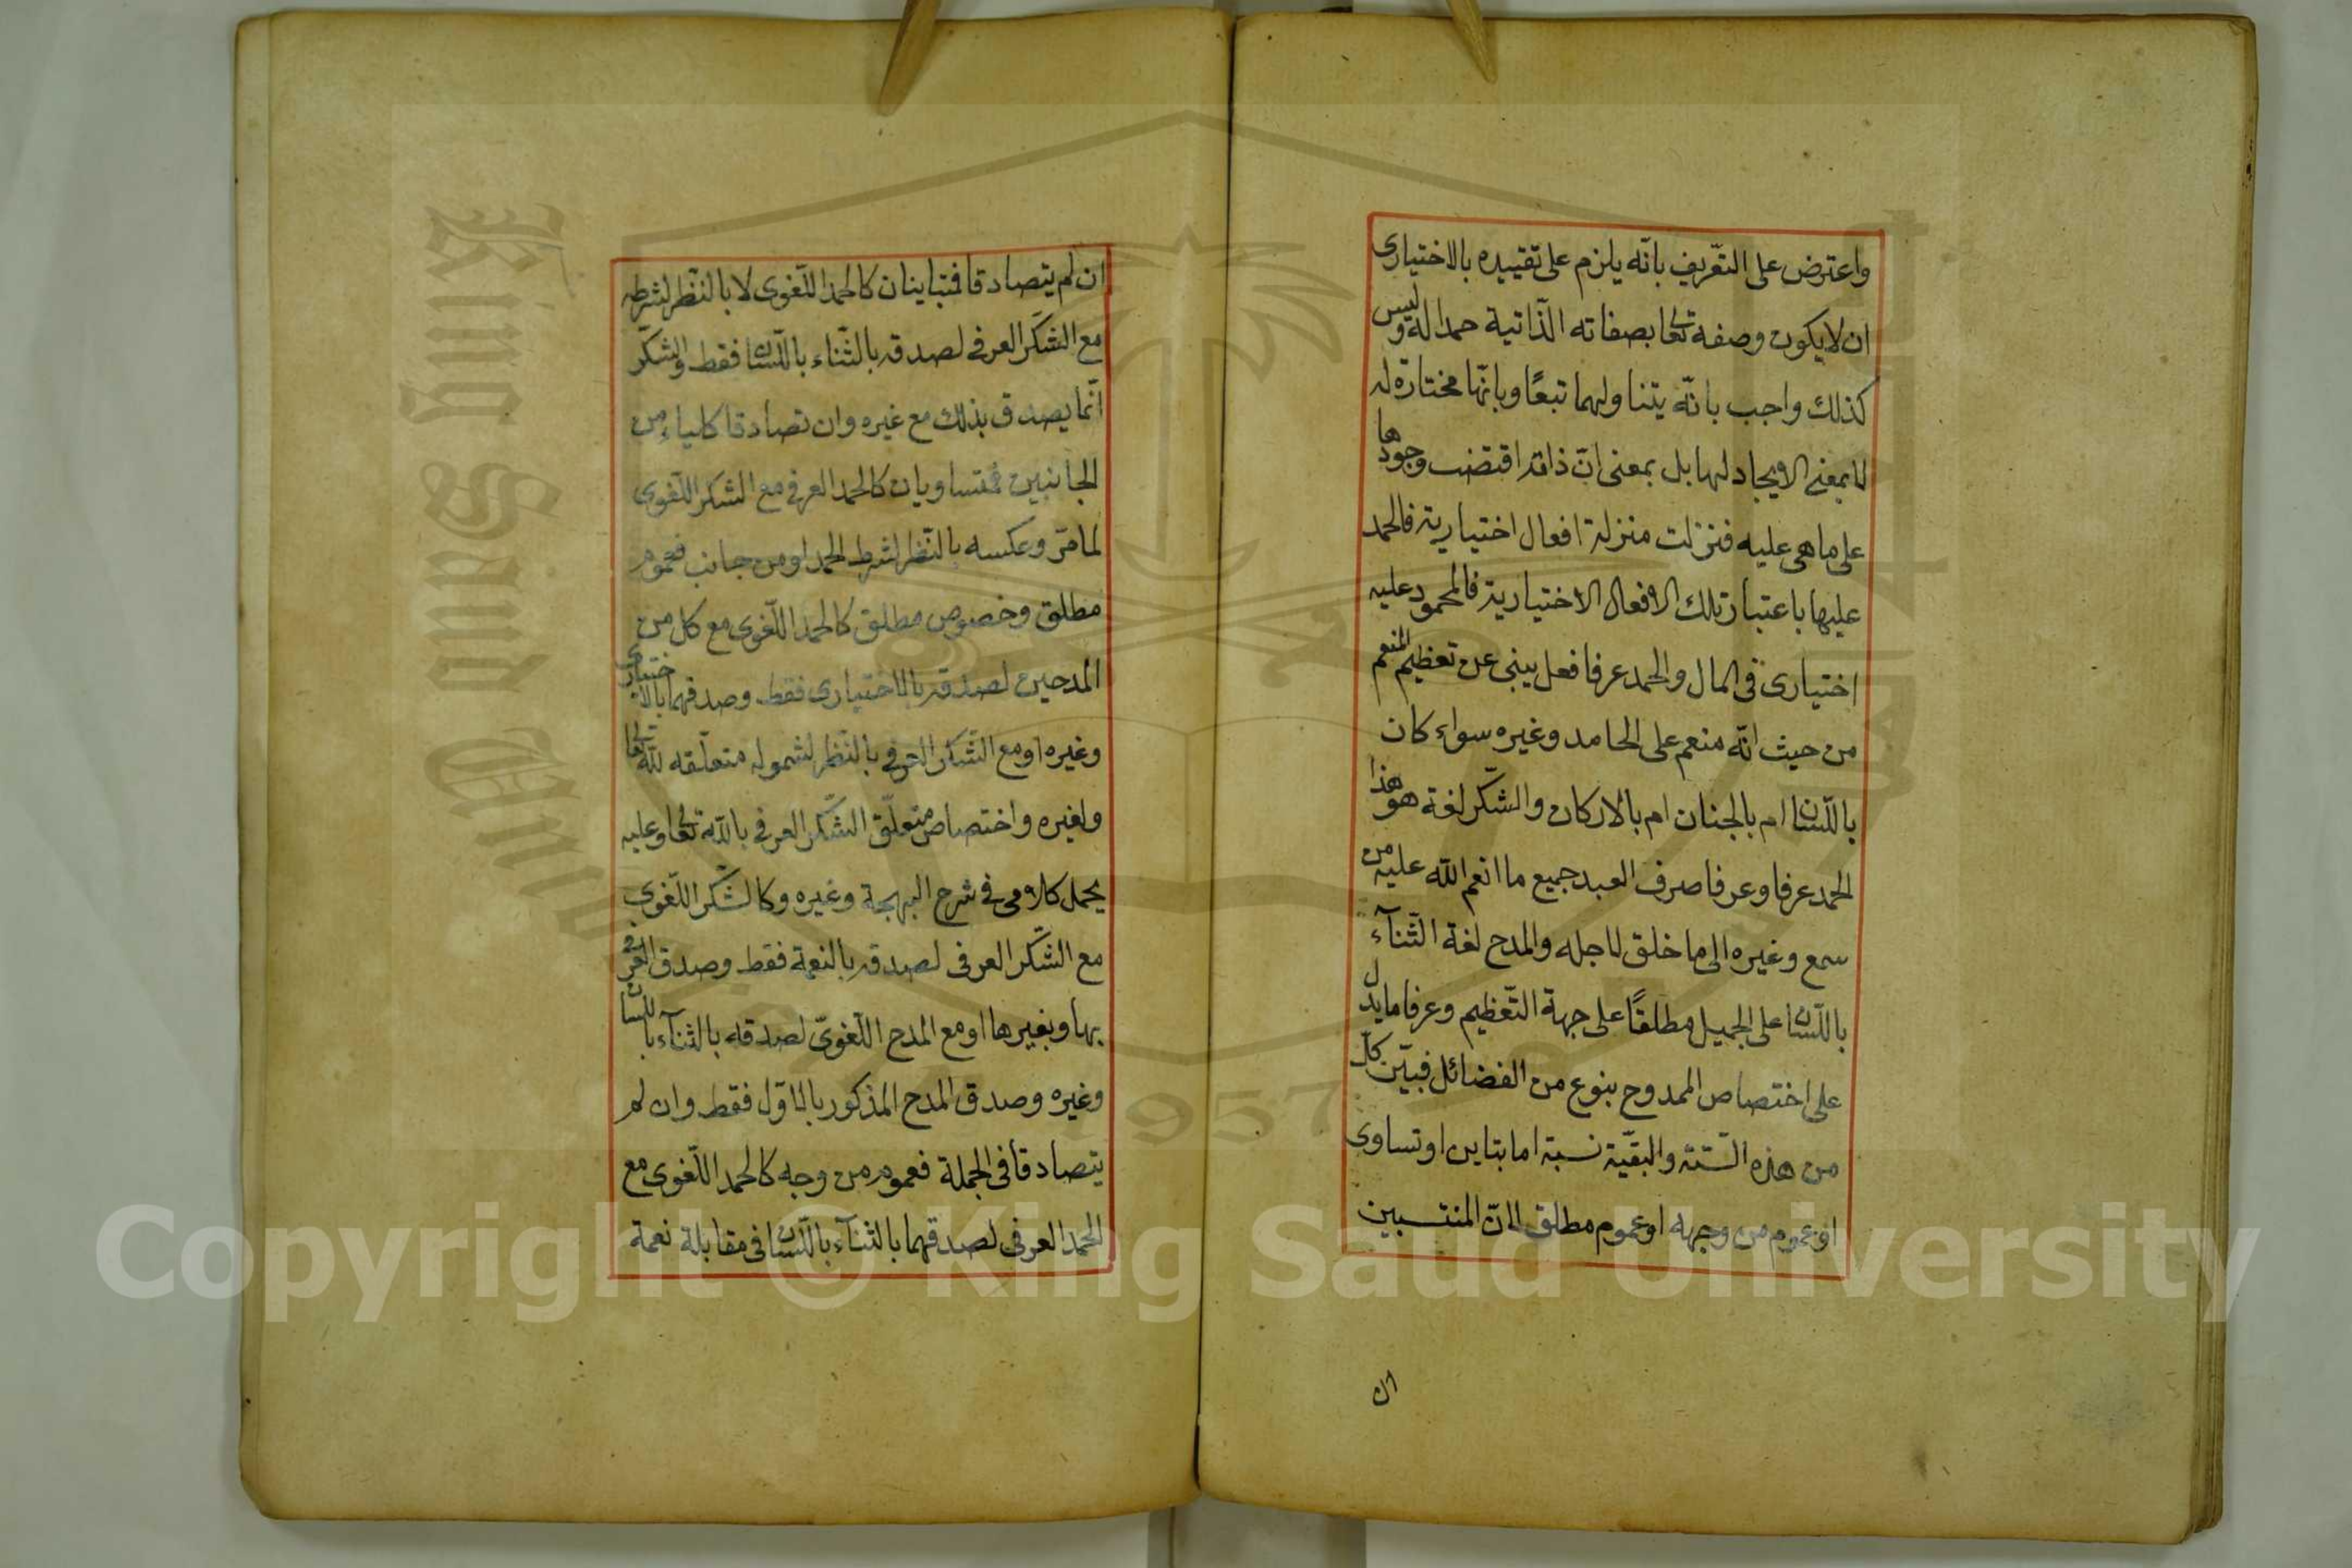 واعترض على التّعريف بانّه يلزم على تقييده بالاختيارى
ان لا يكون وصفه تعا‍لى بصفاته الذّاتية حمدا له وليس
كذلك واجب بانّه يتناولهما تبعًا وبانّها مختارة له
لا بمعنى الايجاد لها بل بمعنى انّ ذاته اقتضت وجودها
على ما هى عليه فنزلت منزلة افعال اختيارية فالحمد
عليها باعتبار تلك الافعال الاختيارية فالمحمود عليه
اختيارى فى المال والحمد عرفا فعل ينبى عن تعظيم المنعم
من حيث انّه منعم على الحامد وغيره سواء كان
باللّسان ام بالجنان ام بالاركان والشّكر لغة هو هذا
الحمد عرفا وعرفا صرف العبد جميع ما انعم الله عليه من
سمع وغيره الى ما خلق لاجله والمدح لغة الثّنآء
باللّسان على الجميل مطلقًا على جهة التّعظيم وعرفا ما يدل
على اختصاص الممدوح بنوع من الفضائل فبيّن كلّ
من هذه السّتة والبقيّة نسبة اما بتاين او تساوى
او عموم من وجهه او عموم مطلق لانّ المنتسبين
ان
ان لم يتصادقا فتباينان كالحمد اللّغوى لا بالنّظر لشرطه
مع الشكر العرفى لصدقه بالثّناء باللّسان فقط والشكر
انّما يصدق بذلك مع غيره وان تصادقا كلياء من
الجانبين فمتساويان كالحمد العرفى مع الشكر اللّغوى
لما مرّ وعكسه بالنّظر لشرط الحمد او من جانب فعموم
مطلق وخصوص مطلق كالحمد اللّغوى مع كل من
المدحين لصدقه بالاختيارى فقط وصدقهما بالاختيارى
وغيره او مع الشّكر العرفى بالنّظر لشموله متعلّقه لله تعالى
ولغيره واختصاص متعلّق الشّكر العرفى بالله تعالى وعليه
يحمل كلامى فى شرح البهجة وغيره وكالشّكر اللّغوى
مع الشّكر العرفى لصدقه بالنعمة فقط وصدق العرفى
بها وبغيرها او مع المدح اللّغوىّ لصدقه بالثنآء باللسان
وغيره وصدق المدح المذكور بالاوّل فقط وان لم
يتصادقا فى الجملة فعموم من وجه كالحمد اللّغوى مع
الحمد العرفى لصدقهما بالثنآء باللّسان فى مقابلة نعمة
Copyright © King Saud University
King Saud University
1957